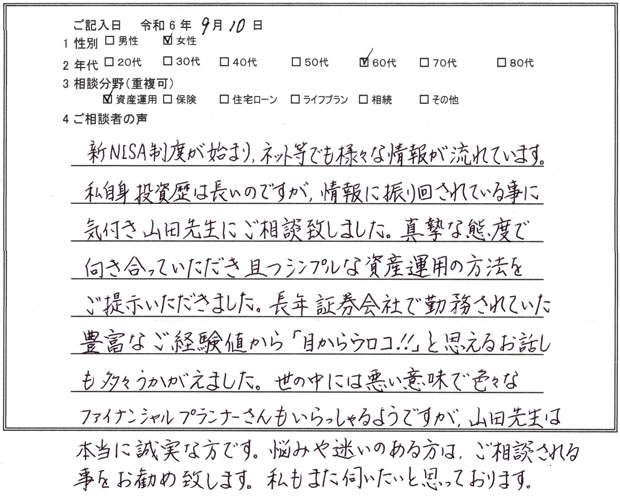 ご記入日 令和6年 9月10日
1 性別 □男性 ☑女性
2 年代 □20代 □30代 □40代 □50代 ☑60代 □70代 □80代
3 相談分野(重複可)
☑資産運用 □保険 □住宅ローン □ライフプラン □相続 □その他
4 ご相談者の声
新NISA制度が始まり、ネット等でも様々な情報が流れています。
私自身投資歴は長いのですが、情報に振り回されている事に
気付き山田先生にご相談致しました。真摯な態度で
向き合っていただき且つシンプルな資産運用の方法を
ご提示いただきました。長年証券会社で勤務されていた
豊富なご経験値から「目からウロコ!!」と思えるお話し
も多々うかがえました。世の中には悪い意味で色々な
ファイナンシャルプランナーさんもいらっしゃるようですが、山田先生は
本当に誠実な方です。悩みや迷いのある方は、ご相談される
事をお勧め致します。私もまた伺いたいと思っております。